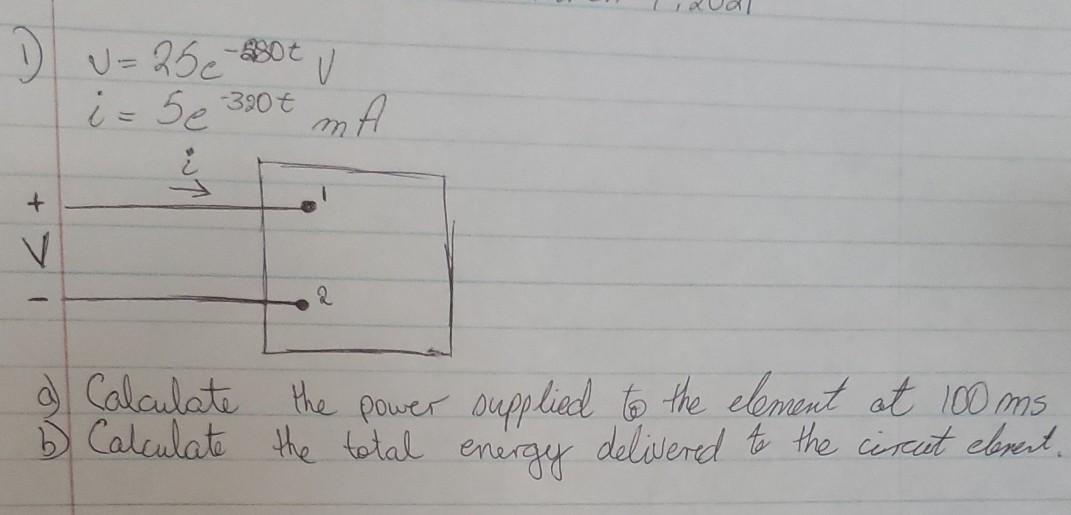 1) v = 25e V
i = 5e^-320t mA
i
+ 1
V
- 2
a) Calculate the power supplied to the element at 100 ms
b) Calculate the total energy delivered to the circut element.